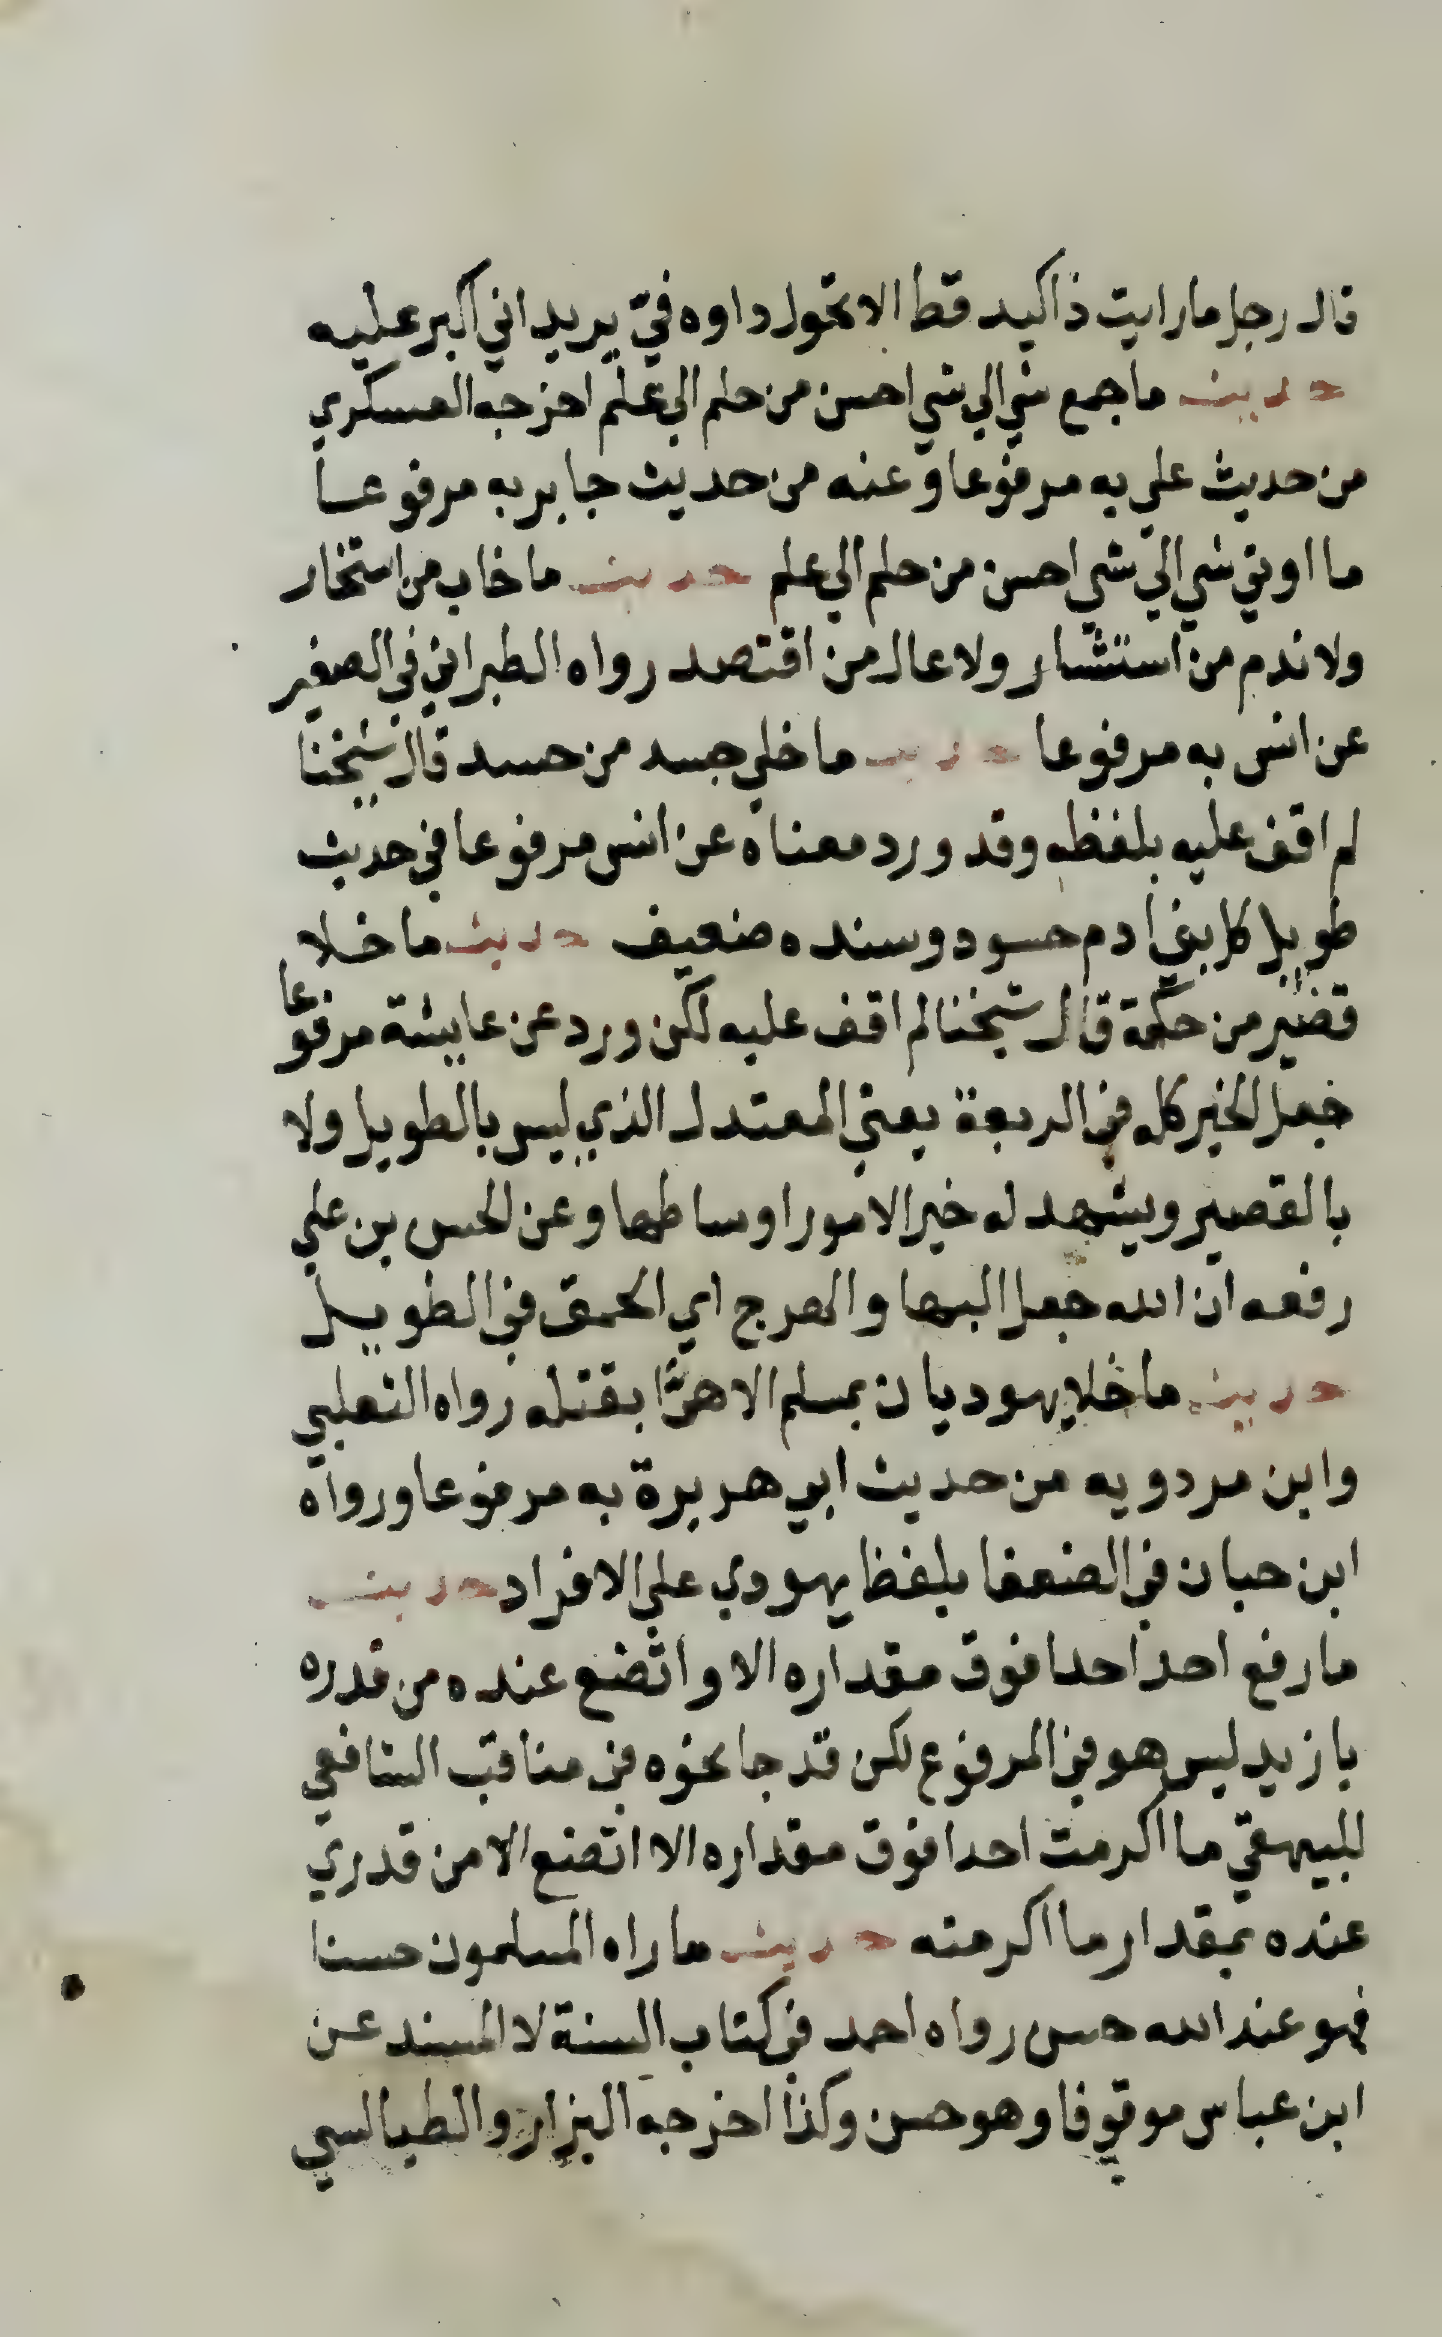 قال رجل ما رايت ذا كيد قط الا تحول داوه في يريد اني اكبر عليه
حديث ما جمع شي الي شي احسن من حلم الي علم اخرجه العسكري
من حديث علي به مرفوعا وعنه من حديث جابر به مرفوعا
ما اوتي شي الي شي احسن من حلم الي علم حديث ما خاب من استخار
ولا ندم من استشار ولا عال من اقتصد رواه الطبراني في الصغير
عن انس به مرفوعا حديث ما خلي جسد من حسد قال شيخنا
لم اقف عليه بلفظه وقد ورد معناه عن انس مرفوعا في حديث
طويل كل بني ادم حسود وسنده ضعيف حديث ما خلا
قصير من حكمة قال شيخنا لم اقف عليه لكن ورد عن عايشة مرفوعا
جعل الخير كله في الربعة يعني المعتدل الذي ليس بالطويل ولا
بالقصير ويشهد له خير الامور اوساطها وعن الحسن بن علي
رفعه ان الله جعل البها والهرج اي الحمق في الطويل
حديث ما خلا يهوديان بمسلم الا همَّا بقتله رواه الثعلبي
وابن مردويه من حديث ابي هريرة به مرفوعا ورواه
ابن حبان في الضعفا بلفظ يهودي علي الافراد حديث
ما رفع احد احدا فوق مقداره الا واتضع عنده من قدره
بازيد ليس هو في المرفوع لكن قد جا نحوه في مناقب الشافعي
للبيهقي ما اكرمت احدا فوق مقداره الا اتضع الا من قدري
عنده بمقدار ما اكرمته حديث ما راه المسلمون حسنا
فهو عند الله حسن رواه احمد في كتاب السنة لا المسند عن
ابن عباس موقوفا وهو حسن وكذا اخرجه البزار والطيالسي